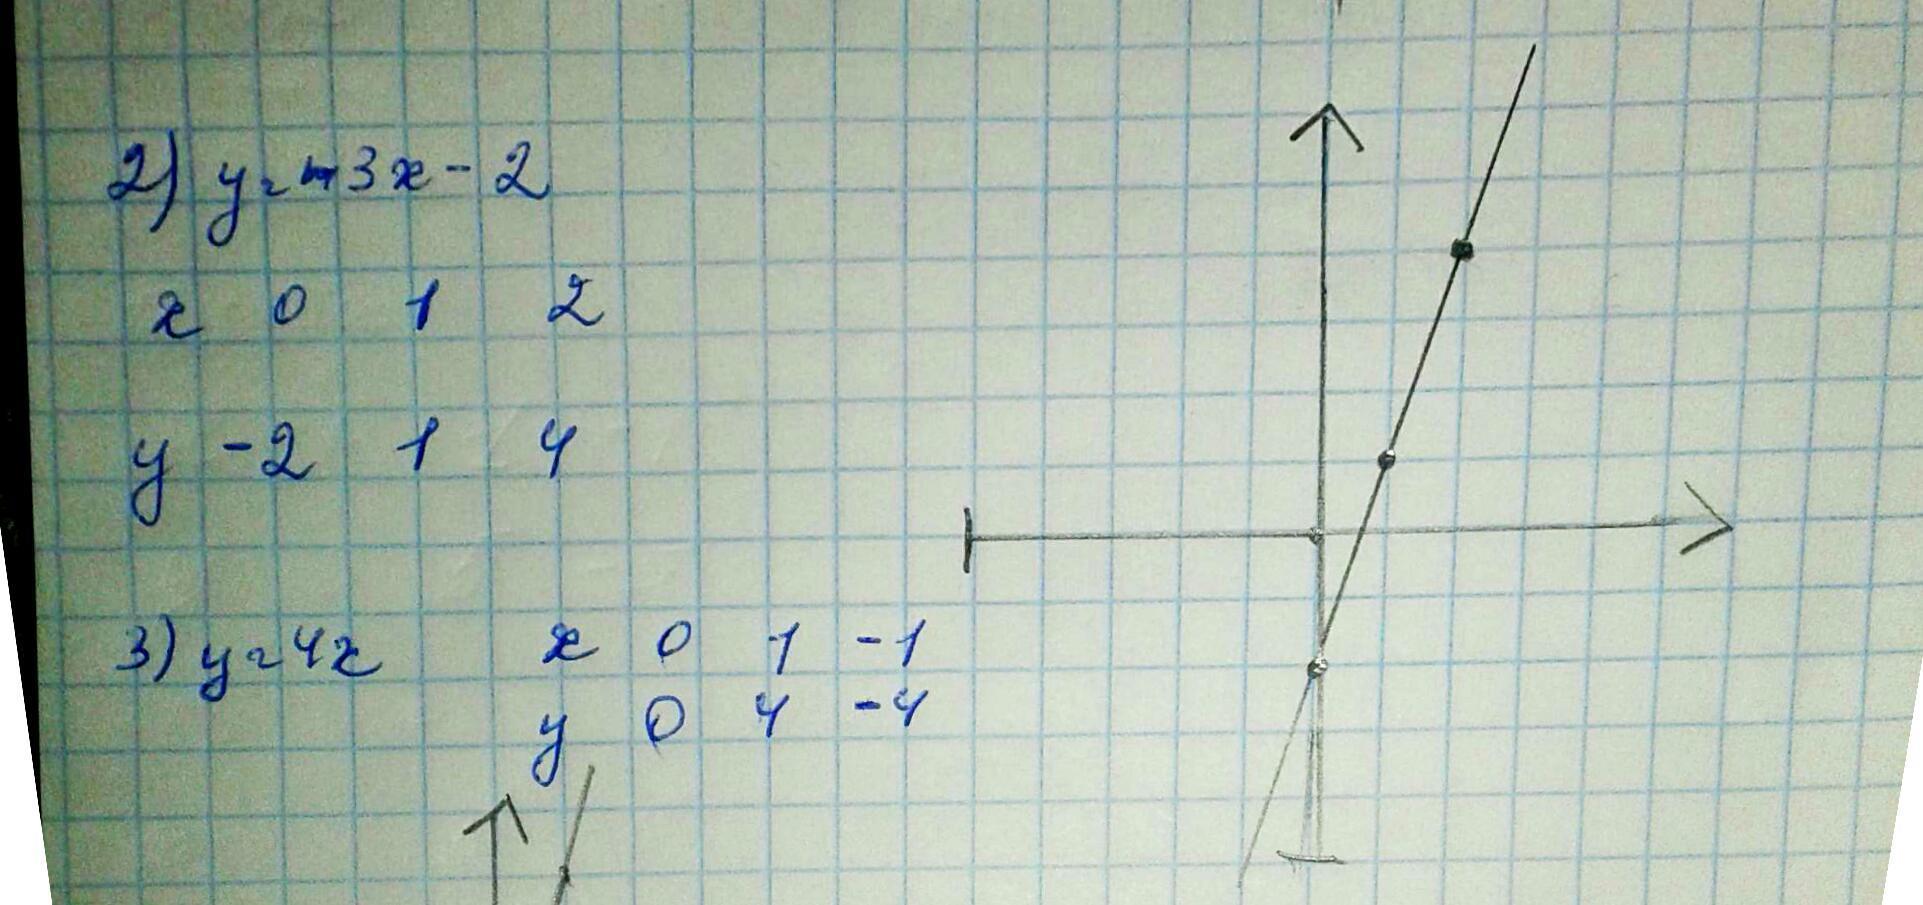 2) y = 3x - 2
x 0 1 2
y -2 1 4
3) y = 4x x 0 1 -1
y 0 4 -4